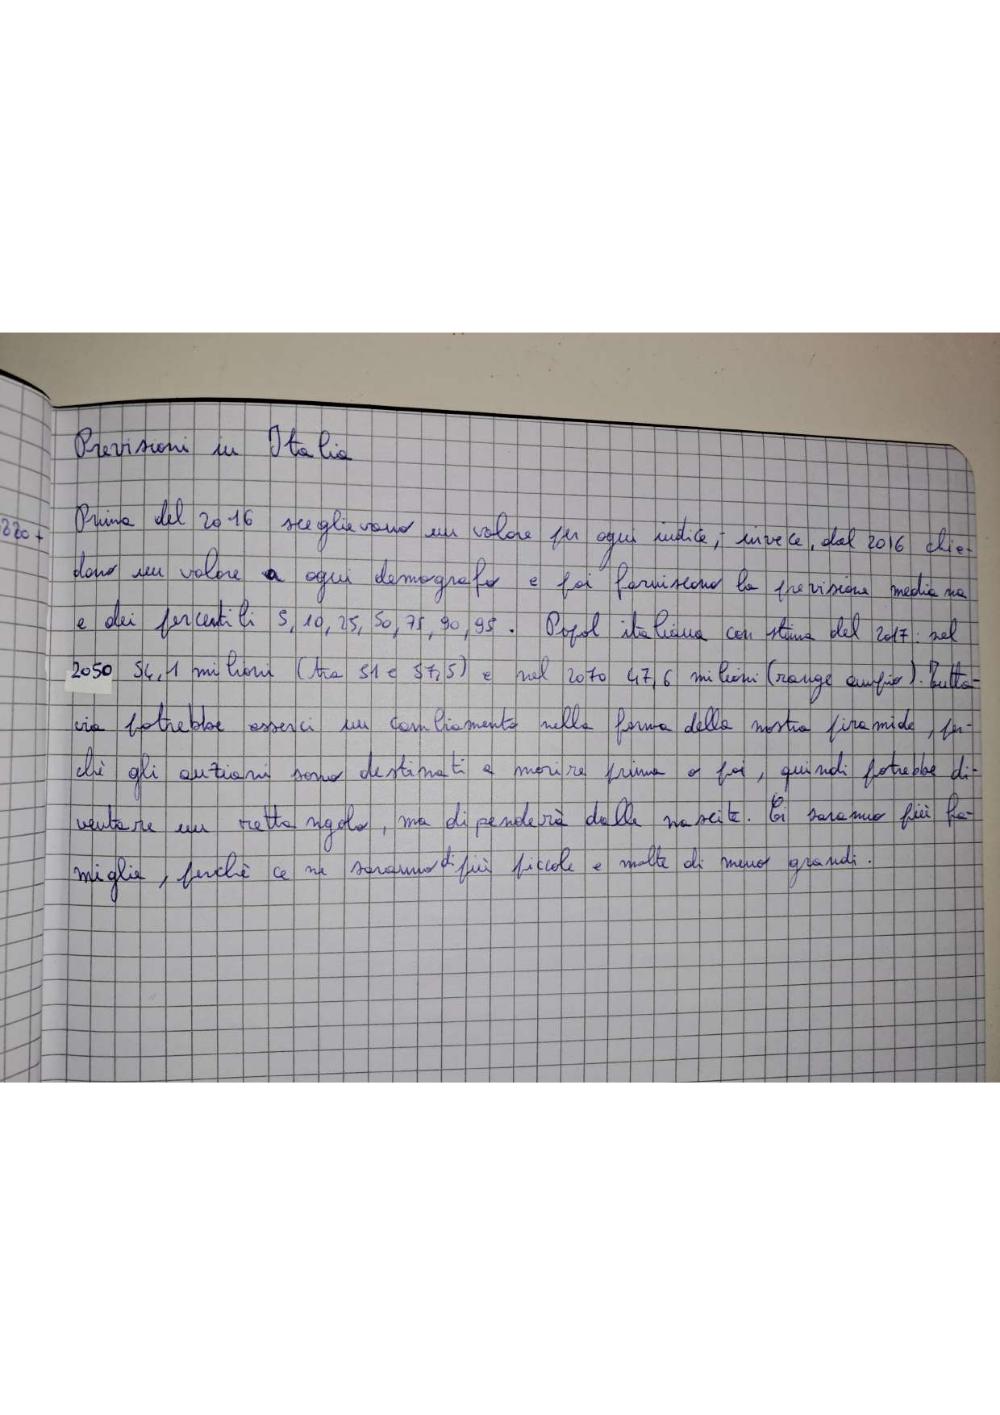 Previsioni in Italia
220+
Prima del 2016 sceglievano un valore per ogni indice, invece, dal 2016 chie-
dono un valore a ogni demografo e poi forniscono la previsione mediana
e dei percentili 5, 10, 25, 50, 75, 90, 95. Popol italiana con stima del 2017: nel
2050 54,1 milioni (tra 51 e 57,5) e nel 2070 47,6 milioni (range ampio). Tutta-
via potrebbe esserci un cambiamento nella forma della nostra piramide, per-
chè gli anziani sono destinati a morire prima o poi, quindi potrebbe di-
ventare un rettangolo, ma dipenderà dalle nascite. Ci saranno più fa-
miglie, perchè ce ne saranno di più piccole e molte di meno grandi.